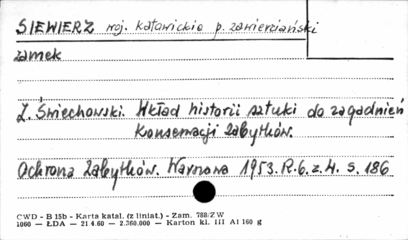 SIEWIERZ woj. katowickie p. zawierciański
zamek
Z. Świechowski. Wkład historii sztuki do zagadnień
konserwacji zabytków.
Ochrona Zabytków. Warszawa 1953. R. 6. z. 4. s. 186
CWD - B 15b - Karta katal. (z liniat.) - Zam. 788/ZW
1060 — ŁDA — 21 4.60 — 2.360.000 — Karton kl. III A1 160 g